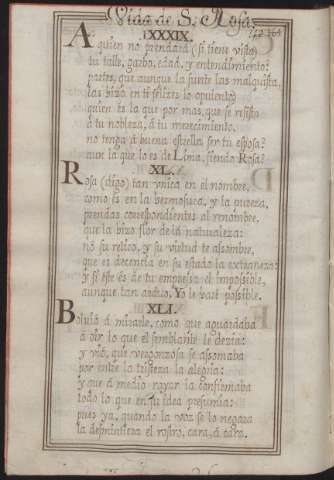 Vida de S. Rosa
XXXIX.
A quien no prendará (si tiene vista)
tu talle, garbo, edad, y entendimiento?
partes, que aunque la suerte las malquista,
las hizo en ti felizes lo opulento?
quien es la que por mas, que se resista
á tu nobleza, á tu merecimiento,
no tenga á buena estrella ser tu esposa?
aun la que lo es de Lima, siendo Rosa?
XL.
Rosa (digo) tan vnica en el nombre,
como es en la hermosura, y la pureza,
prendas correspondientes al renombre,
que la hizo flor de la naturaleza:
no su retiro, y su virtud te assombre,
que es decencia en su estado la extrañeza:
y si este es de tu empressa el impossible,
aunque tan arduo, Yo le haré possible.
XLI.
Boluió á mirarle, como que aguardaba
á oir lo que el semblante le dezia:
y vió, que vergonzosa se assomaba
por entre la tristeza la alegria:
y que á medio rayar la confirmaba
todo lo que en su idea presumia:
pues ya, quando la voz se lo negara
la desmintiera el rostro, cara, á cara.